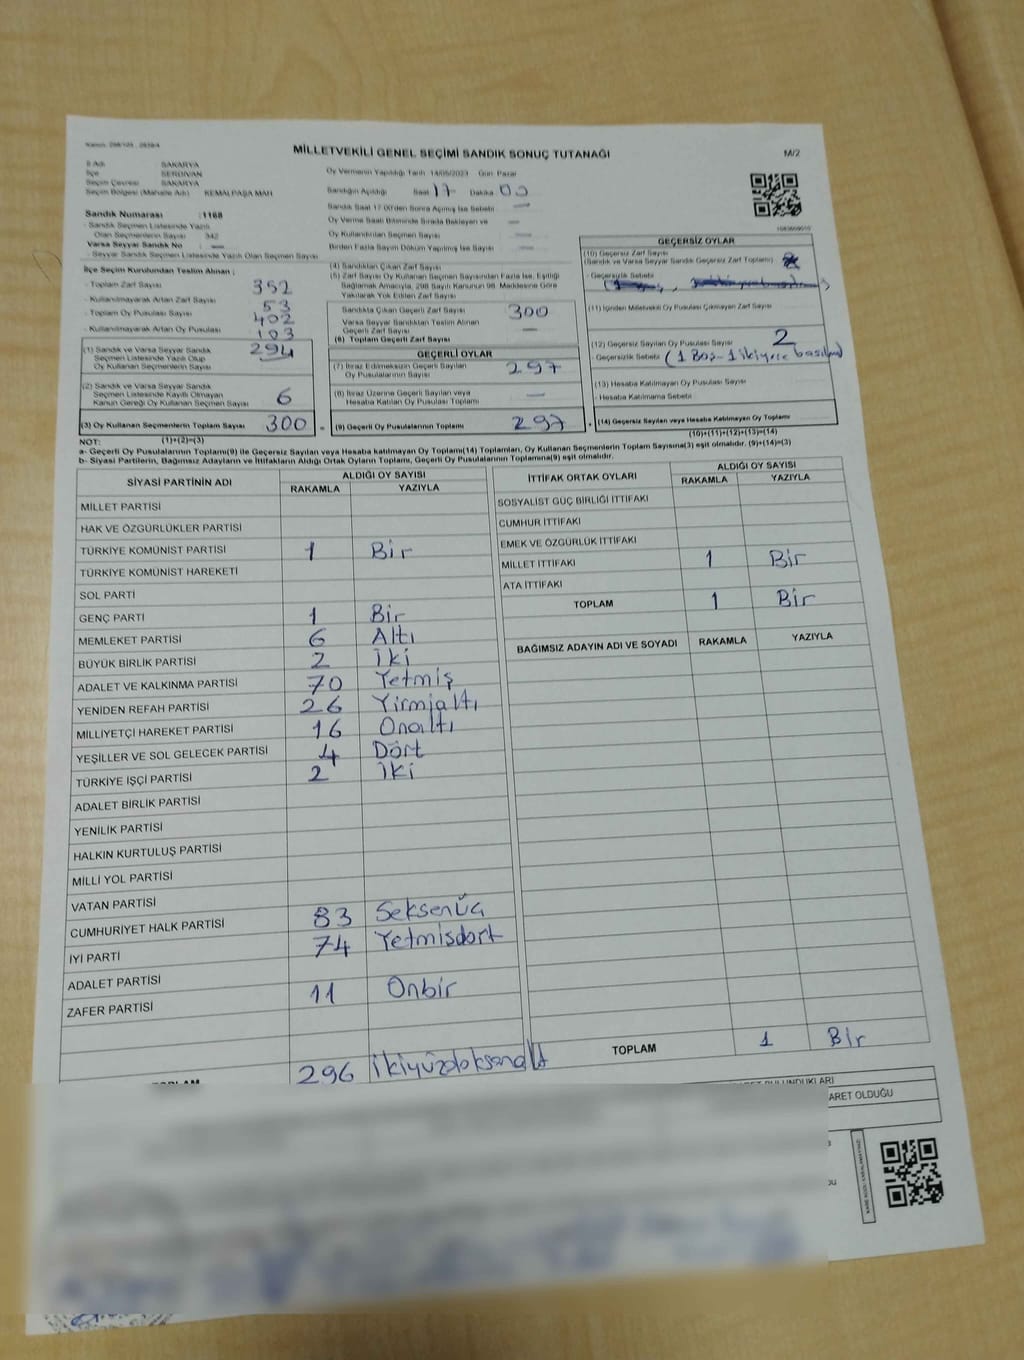 MİLLETVEKİLİ GENEL SEÇİMİ SANDIK SONUÇ TUTANAĞI
M/2
İl Adı SAKARYA
İlçe SERDİVAN
Seçim Çevresi SAKARYA
Seçim Bölgesi (Mahalle Adı) KEMALPAŞA MAH
Sandık Numarası :1168
- Sandık Seçmen Listesinde Yazılı
Olan Seçmenlerin Sayısı 342
Varsa Seyyar Sandık No : —
- Seyyar Sandık Seçmen Listesinde Yazılı Olan Seçmen Sayısı
Oy Vermenin Yapıldığı Tarih 14/05/2023 Gün Pazar
Sandığın Açıldığı Saat 17 Dakika 00
Sandık Saat 17:00'den Sonra Açılmış İse Sebebi —
Oy Verme Saati Bitiminde Sırada Bekleyen ve —
Oy Kullandırılan Seçmen Sayısı —
Birden Fazla Sayım Döküm Yapılmış İse Sayısı —
İlçe Seçim Kurulundan Teslim Alınan ;
- Toplam Zarf Sayısı 352
- Kullanılmayarak Artan Zarf Sayısı 53
- Toplam Oy Pusulası Sayısı 402
- Kullanılmayarak Artan Oy Pusulası 103
(1) Sandık ve Varsa Seyyar Sandık
Seçmen Listesinde Yazılı Olup
Oy Kullanan Seçmenlerin Sayısı 294
(2) Sandık ve Varsa Seyyar Sandık
Seçmen Listesinde Kayıtlı Olmayan
Kanun Gereği Oy Kullanan Seçmen Sayısı 6
(3) Oy Kullanan Seçmenlerin Toplam Sayısı 300
(4) Sandıktan Çıkan Zarf Sayısı
(5) Zarf Sayısı Oy Kullanan Seçmen Sayısından Fazla İse, Eşitliği
Sağlamak Amacıyla, 298 Sayılı Kanunun 98. Maddesine Göre
Yakılarak Yok Edilen Zarf Sayısı
Sandıkta Çıkan Geçerli Zarf Sayısı 300
Varsa Seyyar Sandıktan Teslim Alınan
Geçerli Zarf Sayısı —
(6) Toplam Geçerli Zarf Sayısı
GEÇERLİ OYLAR
(7) İtiraz Edilmeksizin Geçerli Sayılan
Oy Pusulalarının Sayısı 297
(8) İtiraz Üzerine Geçerli Sayılan veya
Hesaba Katılan Oy Pusulası Toplamı —
= (9) Geçerli Oy Pusulalarının Toplamı 297
GEÇERSİZ OYLAR
(10) Geçersiz Zarf Sayısı
(Sandık ve Varsa Seyyar Sandık Geçersiz Zarf Toplamı)
- Geçersizlik Sebebi
(11) İçinden Milletvekili Oy Pusulası Çıkmayan Zarf Sayısı
(12) Geçersiz Sayılan Oy Pusulası Sayısı 2
- Geçersizlik Sebebi (1 Boş-1 ikiyece basılmış)
(13) Hesaba Katılmayan Oy Pusulası Sayısı
- Hesaba Katılmama Sebebi
+ (14) Geçersiz Sayılan veya Hesaba Katılmayan Oy Toplamı
(10)+(11)+(12)+(13)=(14)
NOT: (1)+(2)=(3)
a- Geçerli Oy Pusulalarının Toplamı(9) ile Geçersiz Sayılan veya Hesaba Katılmayan Oy Toplamı(14) Toplamları, Oy Kullanan Seçmenlerin Toplam Sayısına(3) eşit olmalıdır. (9)+(14)=(3)
b- Siyasi Partilerin, Bağımsız Adayların ve İttifakların Aldığı Ortak Oyların Toplamı, Geçerli Oy Pusulalarının Toplamına(9) eşit olmalıdır.
SİYASİ PARTİNİN ADI ALDIĞI OY SAYISI
RAKAMLA YAZIYLA
MİLLET PARTİSİ
HAK VE ÖZGÜRLÜKLER PARTİSİ
TÜRKİYE KOMÜNİST PARTİSİ 1 Bir
TÜRKİYE KOMÜNİST HAREKETİ
SOL PARTİ
GENÇ PARTİ 1 Bir
MEMLEKET PARTİSİ 6 Altı
BÜYÜK BİRLİK PARTİSİ 2 İki
ADALET VE KALKINMA PARTİSİ 70 Yetmiş
YENİDEN REFAH PARTİSİ 26 Yirmialtı
MİLLİYETÇİ HAREKET PARTİSİ 16 Onaltı
YEŞİLLER VE SOL GELECEK PARTİSİ 4 Dört
TÜRKİYE İŞÇİ PARTİSİ 2 İki
ADALET BİRLİK PARTİSİ
YENİLİK PARTİSİ
HALKIN KURTULUŞ PARTİSİ
MİLLİ YOL PARTİSİ
VATAN PARTİSİ
CUMHURİYET HALK PARTİSİ 83 Seksenüç
İYİ PARTİ 74 Yetmisdört
ADALET PARTİSİ
ZAFER PARTİSİ 11 Onbir
296 ikiyüzdoksanaltı
İTTİFAK ORTAK OYLARI ALDIĞI OY SAYISI
RAKAMLA YAZIYLA
SOSYALİST GÜÇ BİRLİĞİ İTTİFAKI
CUMHUR İTTİFAKI
EMEK VE ÖZGÜRLÜK İTTİFAKI
MİLLET İTTİFAKI 1 Bir
ATA İTTİFAKI
TOPLAM 1 Bir
BAĞIMSIZ ADAYIN ADI VE SOYADI RAKAMLA YAZIYLA
TOPLAM 1 Bir
ARET OLDUĞU